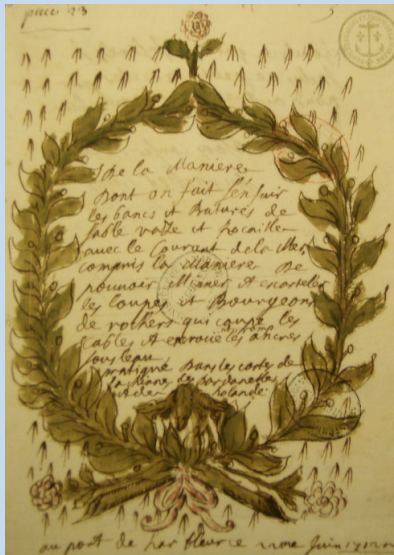 piece 23
De la Maniere
Dont on fait
les bancs et Batures de
sable vaze et pocaille
avec le Courant de la Mer,
compris la Maniere De
pouvoir Miner et escarteler
les loupes et Bourgeons
de rochers qui coupe les
cables et les ancres
sous leau
pratiqué Dans les costes de
des Dardanelles
et de holande
au port de harfleur ce juin